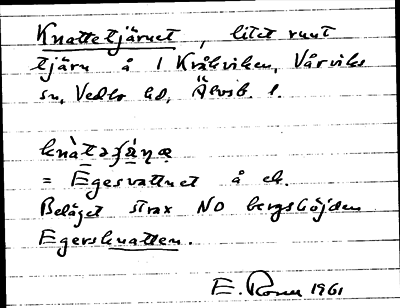 Knattetjärnet, litet runt
tjärn å 1 Kråkviken, Vårviks
sn, Vedbo hd, Älvsb. l.
= Egesvattnet å ek.
Beläget strax NO bergshöjden
Egersknatten.
E. 1961